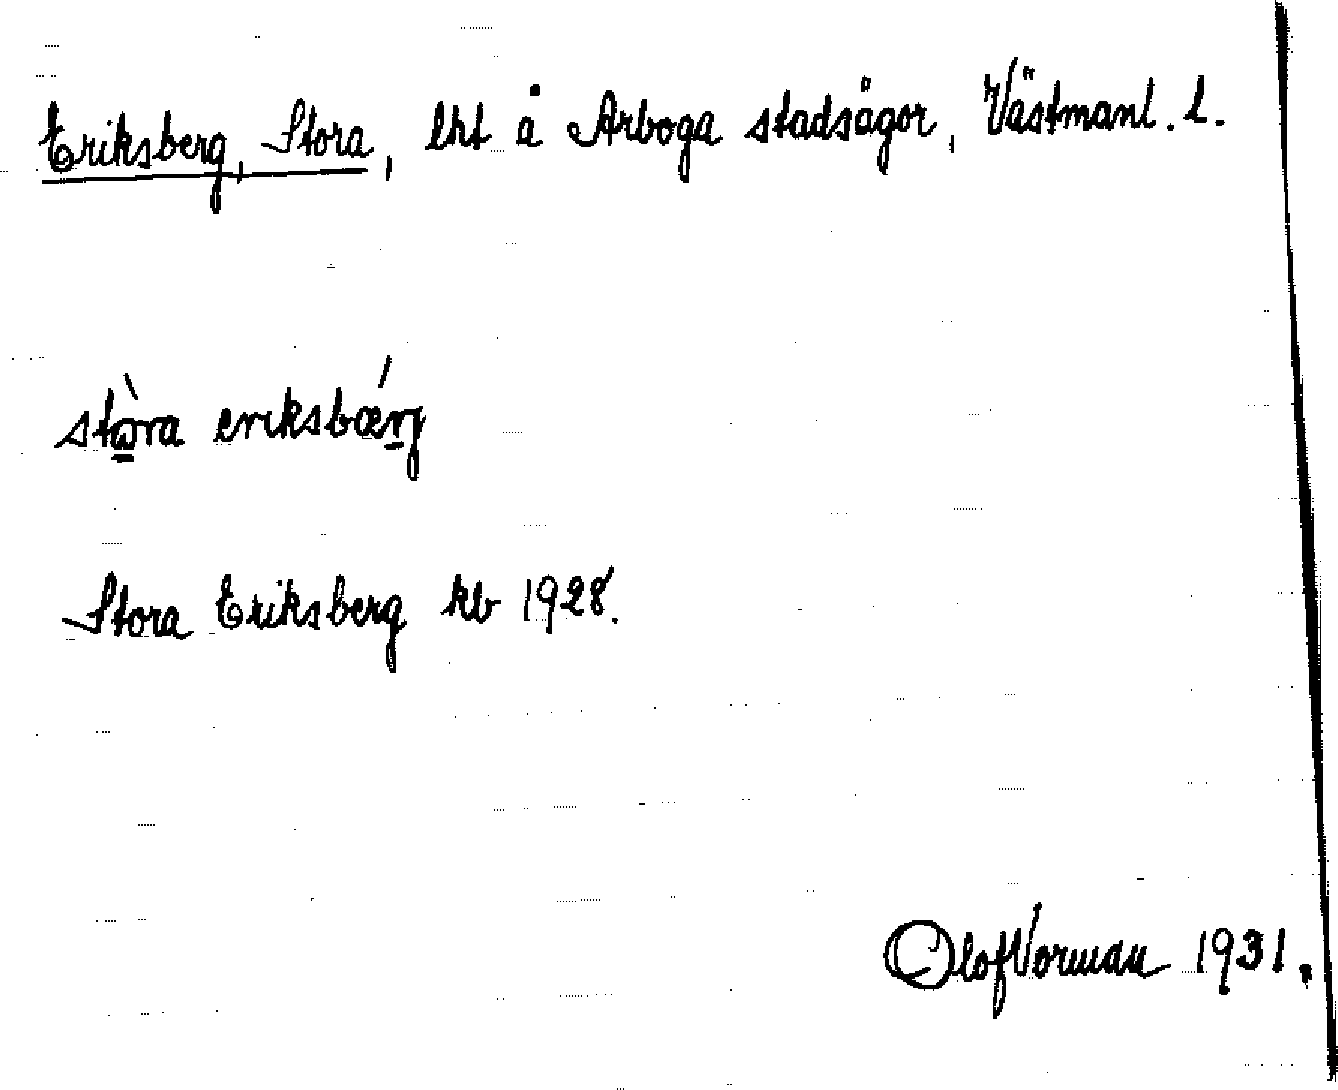 Eriksberg, Stora, lht å Arboga stadsägor, Västmanl. l.
stὼra eriksbœ́rj
Stora Eriksberg kb 1928.
Olof Vorman 1931.